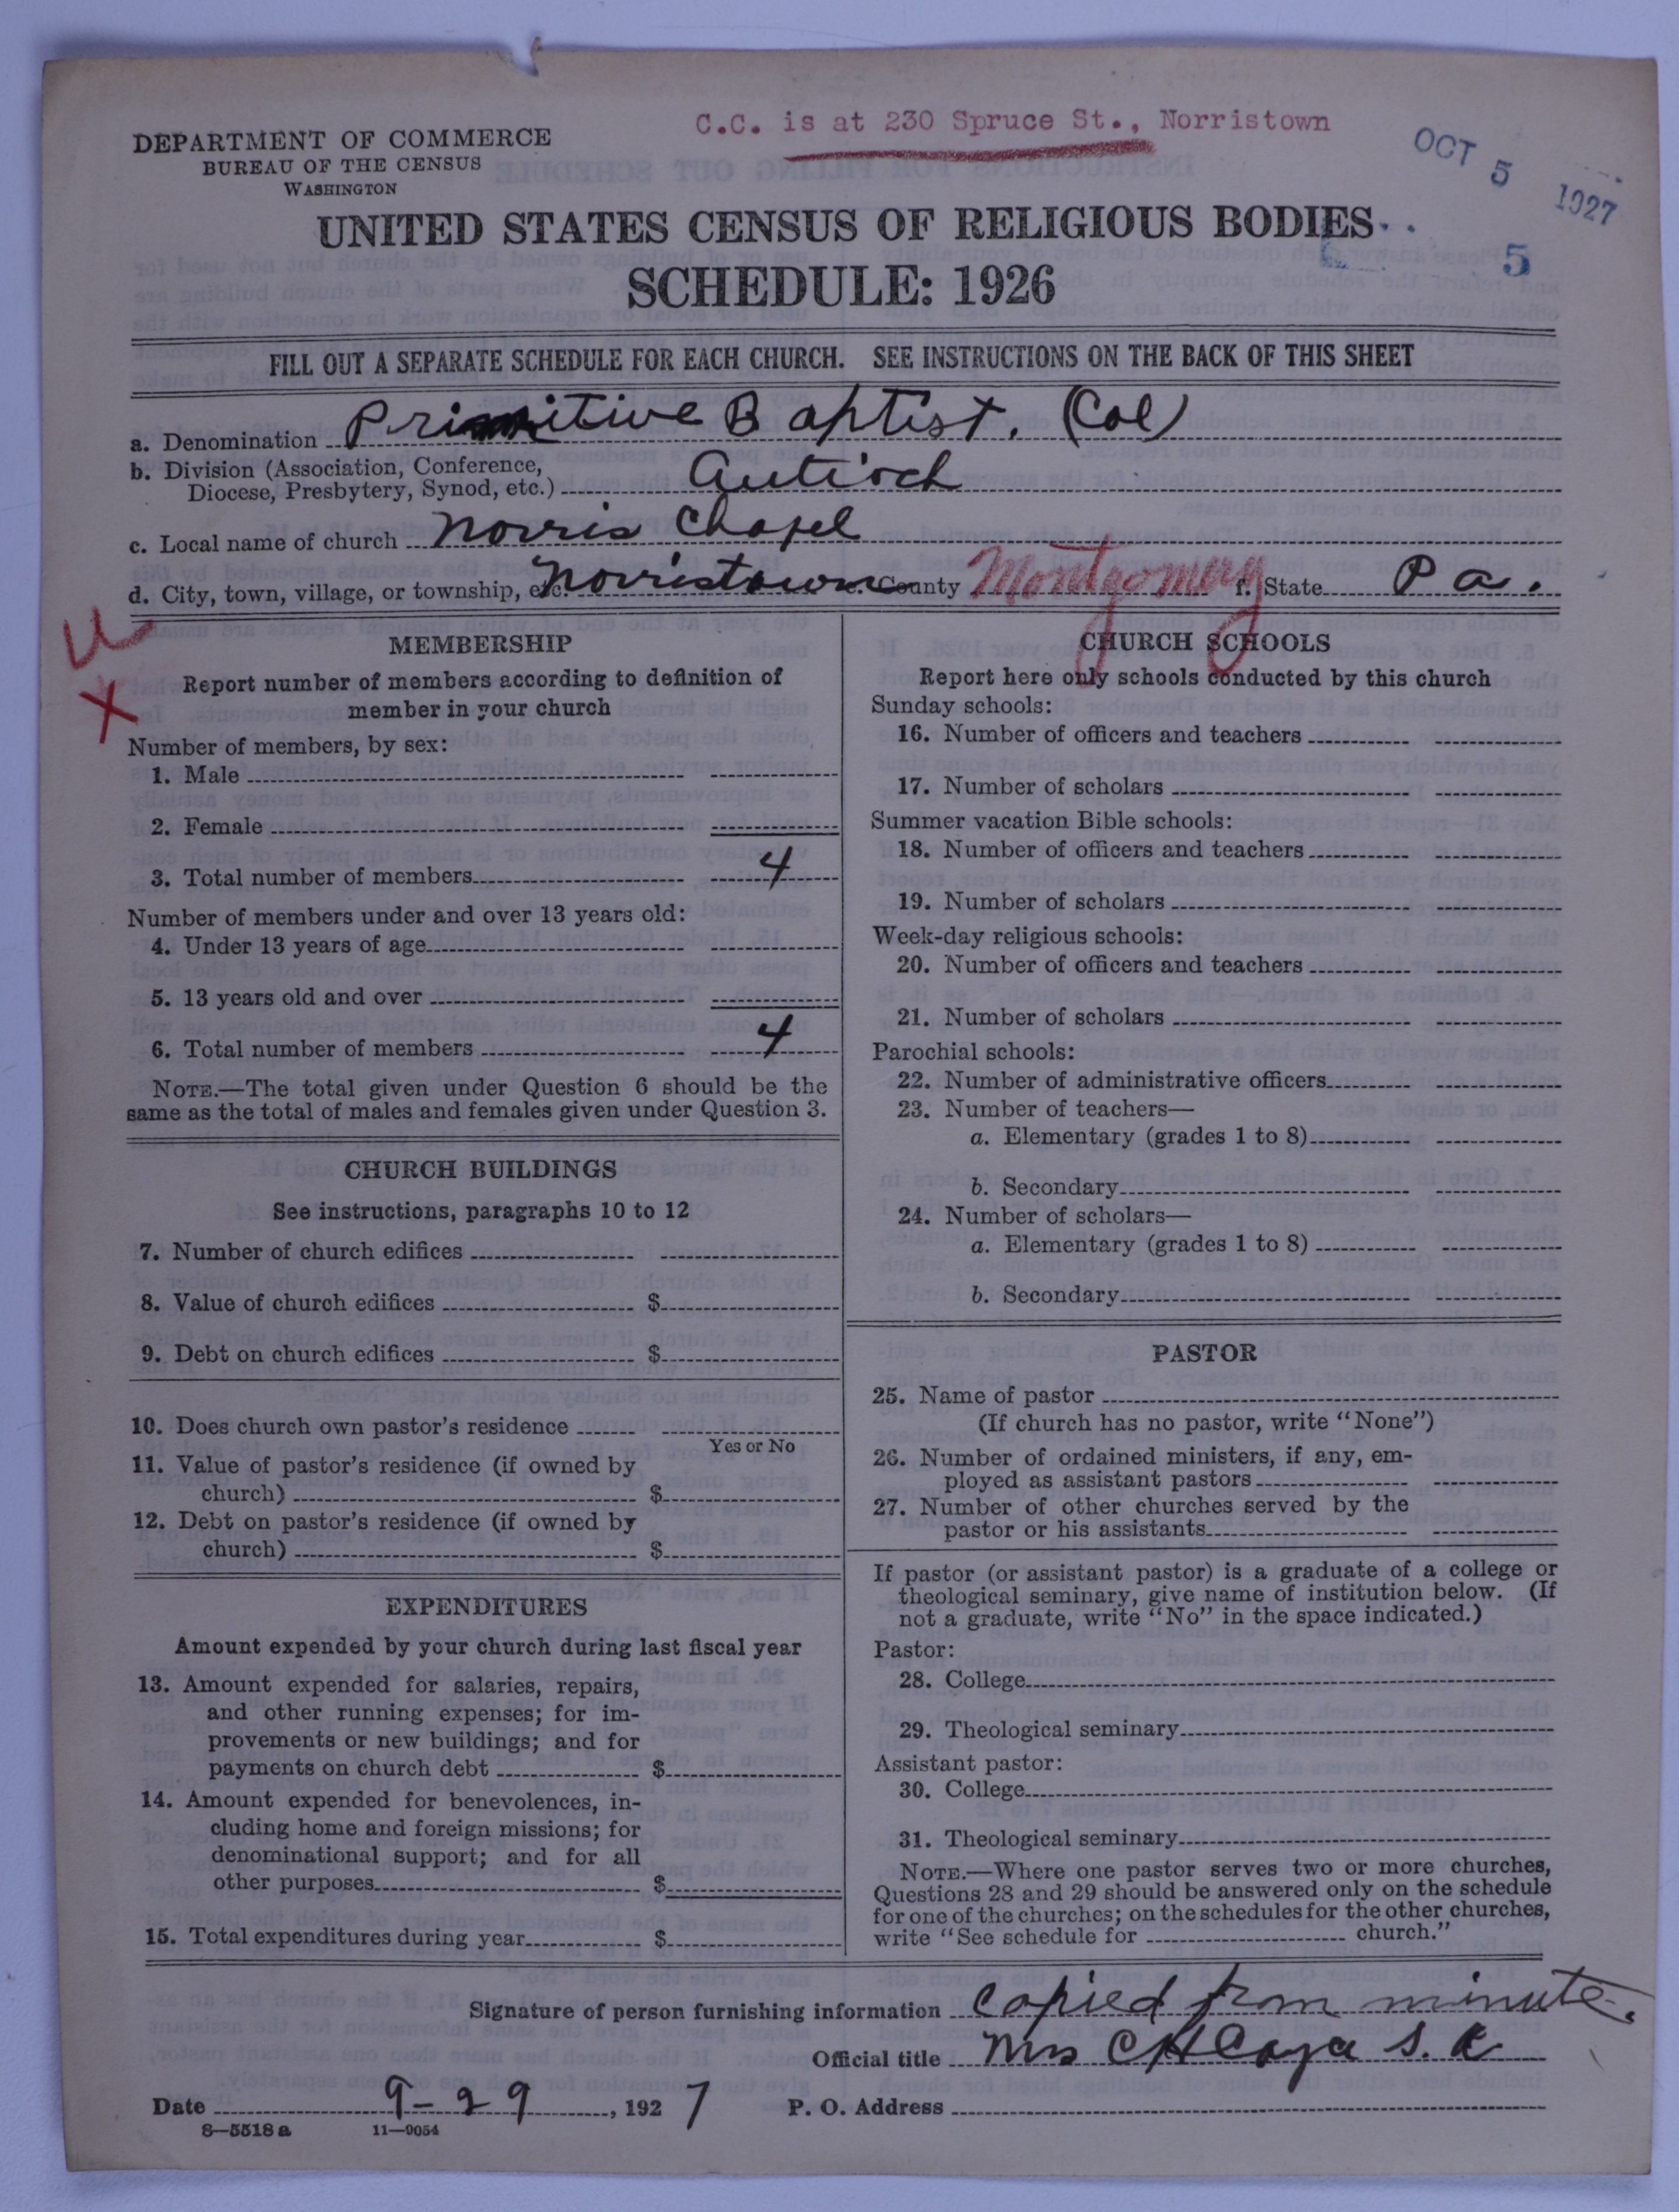 C.C. is at 230 Spruce St., Norristown
DEPARTMENT OF COMMERCE
BUREAU OF THE CENSUS
WASHINGTON
OCT 5 1927
UNITED STATES CENSUS OF RELIGIOUS BODIES
5
SCHEDULE: 1926
FILL OUT A SEPARATE SCHEDULE FOR EACH CHURCH. SEE INSTRUCTIONS ON THE BACK OF THIS SHEET
a. Denomination Primitive Baptist. (Col)
b. Division (Association, Conference,
Diocese, Presbytery, Synod, etc.) Antioch
c. Local name of church Norris Chapel
d. City, town, village, or township, etc. Norristown e. County Montgomery f. State Pa.
MEMBERSHIP
Report number of members according to definition of
member in your church
Number of members, by sex:
1. Male
2. Female
3. Total number of members 4
Number of members under and over 13 years old:
4. Under 13 years of age
5. 13 years old and over
6. Total number of members 4
NOTE.—The total given under Question 6 should be the
same as the total of males and females given under Question 3.
CHURCH BUILDINGS
See instructions, paragraphs 10 to 12
7. Number of church edifices
8. Value of church edifices $
9. Debt on church edifices $
10. Does church own pastor's residence
Yes or No
11. Value of pastor's residence (if owned by
church) $
12. Debt on pastor's residence (if owned by
church) $
EXPENDITURES
Amount expended by your church during last fiscal year
13. Amount expended for salaries, repairs,
and other running expenses; for im-
provements or new buildings; and for
payments on church debt $
14. Amount expended for benevolences, in-
cluding home and foreign missions; for
denominational support; and for all
other purposes $
15. Total expenditures during year $
CHURCH SCHOOLS
Report here only schools conducted by this church
Sunday schools:
16. Number of officers and teachers
17. Number of scholars
Summer vacation Bible schools:
18. Number of officers and teachers
19. Number of scholars
Week-day religious schools:
20. Number of officers and teachers
21. Number of scholars
Parochial schools:
22. Number of administrative officers
23. Number of teachers—
a. Elementary (grades 1 to 8)
b. Secondary
24. Number of scholars—
a. Elementary (grades 1 to 8)
b. Secondary
PASTOR
25. Name of pastor
(If church has no pastor, write "None")
26. Number of ordained ministers, if any, em-
ployed as assistant pastors
27. Number of other churches served by the
pastor or his assistants
If pastor (or assistant pastor) is a graduate of a college or
theological seminary, give name of institution below. (If
not a graduate, write "No" in the space indicated.)
Pastor:
28. College
29. Theological seminary
Assistant pastor:
30. College
31. Theological seminary
NOTE.—Where one pastor serves two or more churches,
Questions 28 and 29 should be answered only on the schedule
for one of the churches; on the schedules for the other churches,
write "See schedule for church."
Signature of person furnishing information Copied from minute.
Official title Mrs C H
Date 9-29, 1927 P. O. Address
8—5518a 11—9054